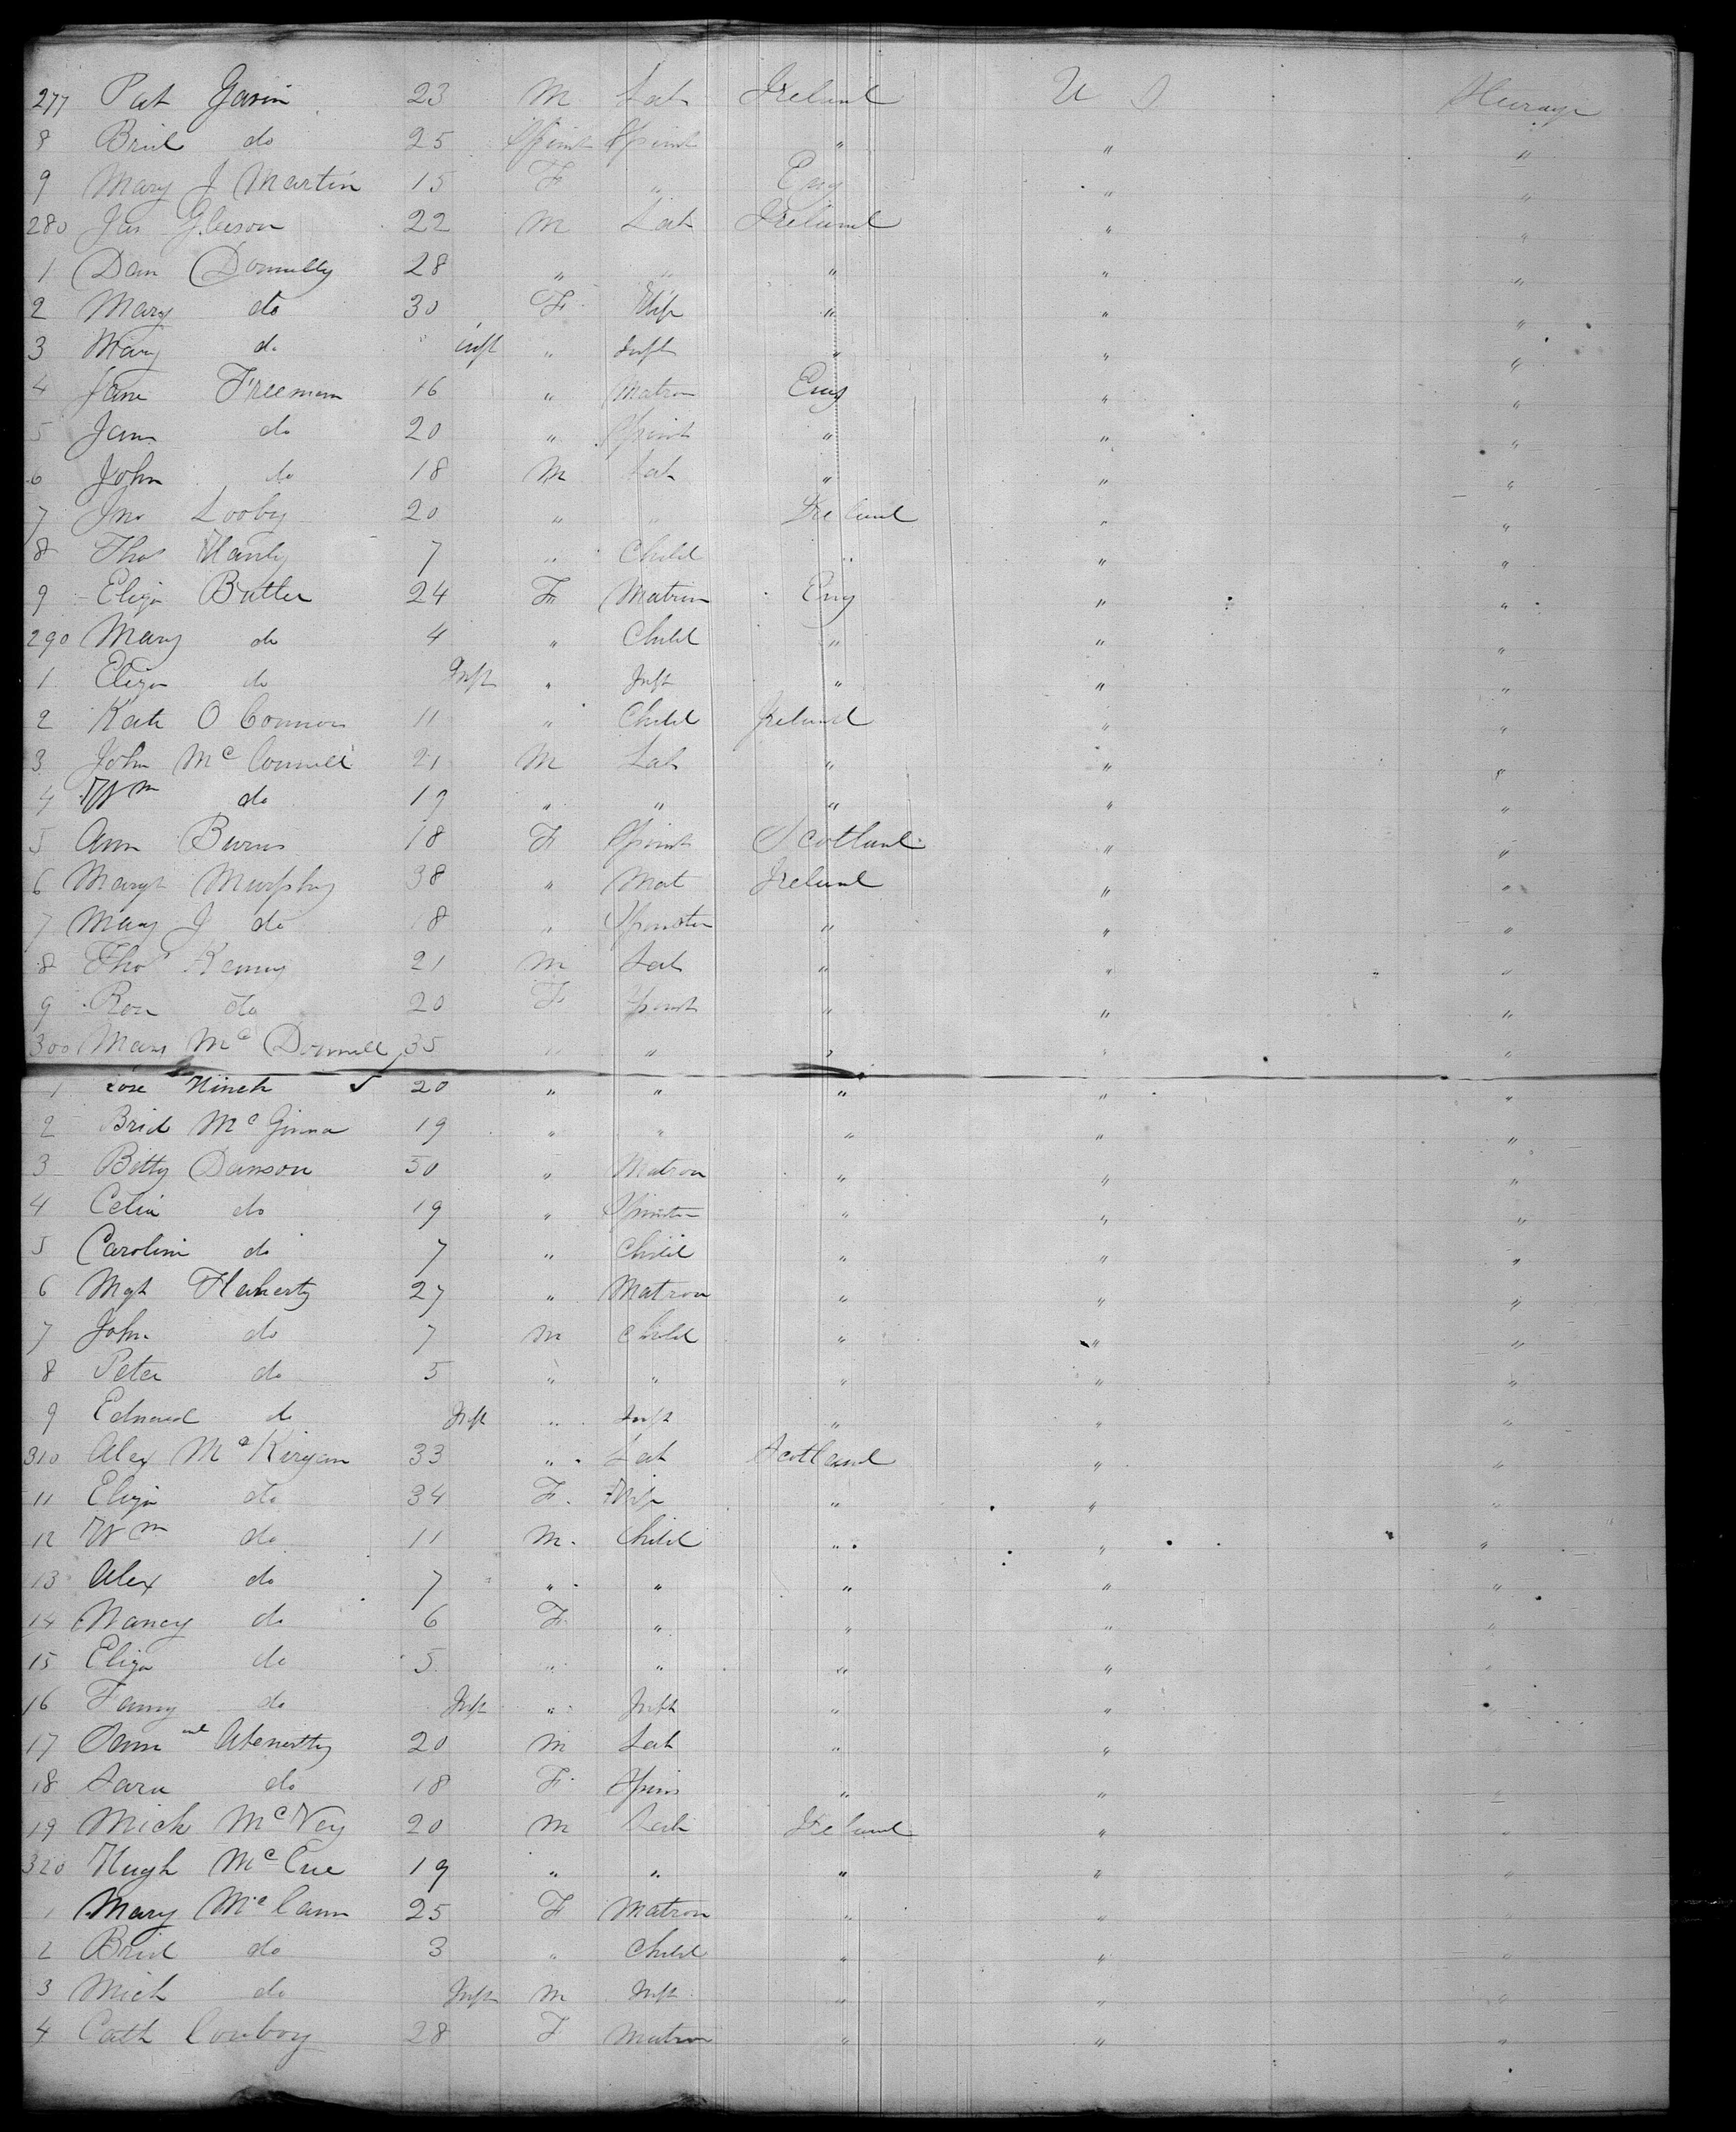 277 Pat Gavin 23 M Lab Ireland U S Steerage
8 Brid do 25 Spinst Spinst " " "
9 Mary J Martin 15 F " Eng " "
280 Jas Gleeson 22 M Lab Ireland " "
1 Dan Donnelly 28 " " " " "
2 Mary do 30 F Wife " " "
3 Mary do inft " Inft " " "
4 Jane Freeman 16 " Matron Eng " "
5 Jane do 20 " Spinst " " "
6 John do 18 M Lab " " "
7 Jno Looby 20 " " Ireland " "
8 Thos Hanly 7 " Child " " "
9 Eliza Butler 24 F Matron Eng " "
290 Mary do 4 " Child " " "
1 Eliza do Inft " Inft " " "
2 Kate O Connor 11 " Child Ireland " "
3 John Mc Connell 21 M Lab " " "
4 Wm do 19 " " " " "
5 Ann Burns 18 F Spinst Scotland " "
6 Margt Murphy 38 " Mat Ireland " "
7 Mary J do 18 " Spinster " " "
8 Thos Kenny 21 M Lab " " "
9 Rose do 20 F Spinst " " "
300 Mary Mc Donnell 35 " " " " "
1 Rose Hinch 20 " " " " "
2 Brid Mc Ginna 19 " " " " "
3 Betty Danson 50 " Matron " " "
4 Celia do 19 " Spinster " " "
5 Caroline do 7 " Child " " "
6 Mgt Flaherty 27 " Matron " " "
7 John do 7 M Child " " "
8 Peter do 5 " " " " "
9 Edward do Inft " Inft " " "
310 Alex Mc Kirgan 33 " Lab Scotland " "
11 Eliza do 34 F Wife " " "
12 Wm do 11 M Child " " "
13 Alex do 7 " " " " "
14 Nancy do 6 F " " " "
15 Eliza do 5 " " " " "
16 Fanny do Inft " Inft " " "
17 20 M Lab " "
18 Sara do 18 F Spins " " "
19 Mich McVey 20 M Lab Ireland " "
320 Hugh McCue 19 " " " " "
1 Mary McCann 25 F Matron " " "
2 Brid do 3 " Child " " "
3 Mich do Inft M Inft " " "
4 Cath Conboy 28 F Matron " " "